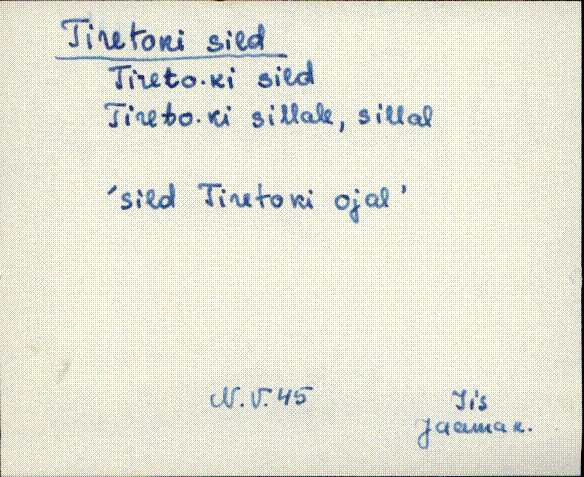 Tiretoki sild
Tireto·ki sild
Tireto·ki sillale, sillal
'sild Tiretoki ojal'
N.V.45
Iis
Jaamak.